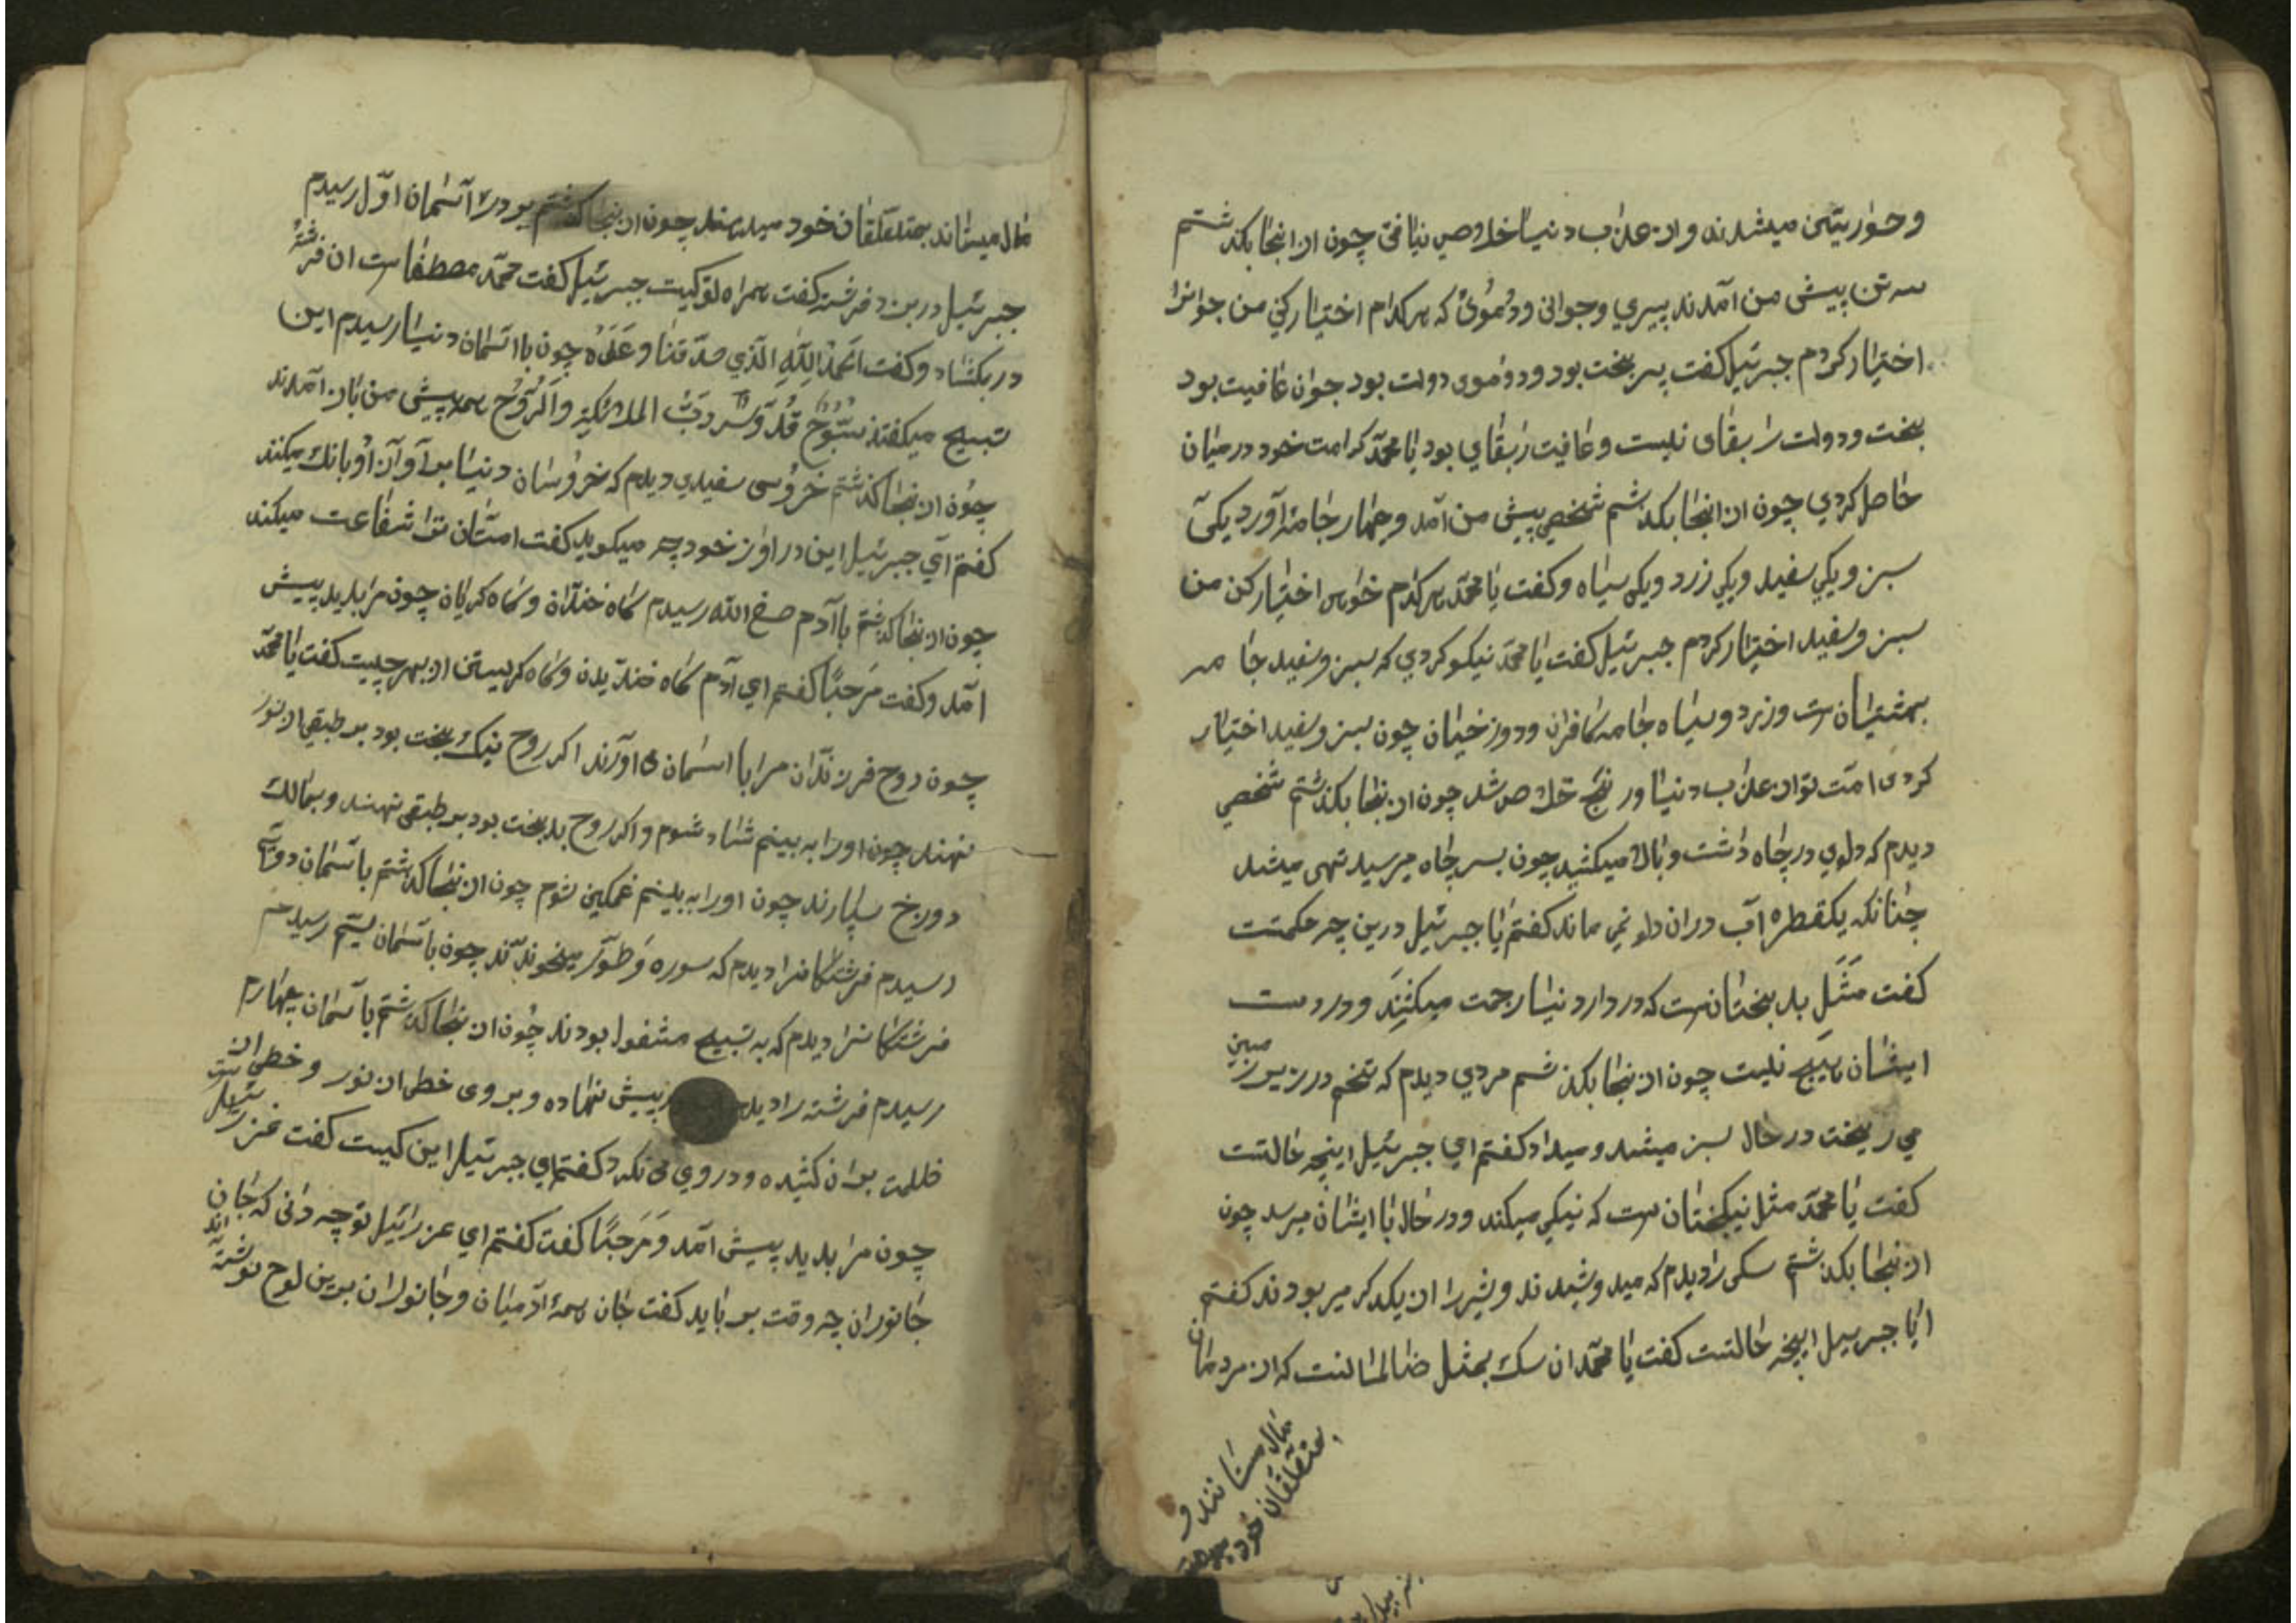 و حواریتی میشدند و از عذاب دنیا خلاص نیافتی چون از انجا بکذشتم
سه تن پیش من آمدند پیری و جوانی و دُمُویُ که هر کدام اختیار کنی من جوانرا
اختیار کردم جبرئیل کفت پیر بخت بود و دوموی دولت بود جوان عافیت بود
بخت و دولت را بقای نیست و عافیت را بقای بود یا محمّد کرامت خود در میان
حاصل کردی چون از انجا بکذشتم شخصی پیش من آمد و چهار جامه آورد یکی
سبز و یکی سفید و یکی زرد و یکی سیاه و کفت یا محمّد هر کدام خواهی اختیار کن من
سبز و سفید اختیار کردم جبرئیل کفت یا محمّد نیکو کردی که سبز و سفید جامه
بهشتیان ست و زرد و سیاه جامه کافران و دوزخیان چون سبز و سفید اختیار
کردی امت تو از عذاب دنیا و رنج خلاص شد چون از نجا بکذشتم شخصی
دیدم که دلوی در چاه داشت و بالا میکشید چون بسر چاه میرسید تهی میشد
چنانکه یکقطره آب دران دلو نمی ماند کفتم یا جبرئیل درین چه حکمتست
کفت مَثَل بدبختان ست که در دار دنیا رحمت میکشِند و در دست
ایشان هیچ نیست چون از نجا بکذشتم مردی دیدم که تخم در زیر زمین
می ریخت در حال سبز میشد و میداد کفتم ای جبرئیل اینچه حالتست
کفت یا محمّد مثل نیکبختان ست که نیکی میکند و در حال با ایشان میرسد چون
از نجا بکذشتم سکی را دیدم که میدوشیدند و شیر را از یکدکر میربودند کفتم
ایا جبرییل اینچه حالتست کفت یا محمّد ان سک بمثل ضالمانست که از مردمان
مال میستانند و
بمتعلّقان خود میدهند
مال میستاند بمتعلّقان خود میدهند چون از نجا کذشتم بر در آسمان اوّل رسیدم
جبرئیل در بزد فرشته کفت همراه تو کیست جبرئیل کفت محمّد مصطفاست ان فرشته
در بکشاد و کفت اَلحَمدُ لِلّٰهِ الَّذی صدّقنا وَعَدَهُ چون با اسمان دنیا رسیدم این
تسبیح میکفتند سُبُّوحٌ قُدُّوسٌ رَبُّ الملائکةِ وَالرُّوحُ همه پیش من باز آمدند
چون از نجا کذشتم خروُسی سفیدی دیدم که خروُسان دنیا بر آوازِ اُو بانک میکنند
کفتم ای جبرئیل این در اواز خود چه میکوید کفت امتان ترا شفاعت میکند
چون از نجا کذشتم با آدم صفی الله رسیدم کاه خندان و کاه کریان چون مرا بدید پیش
آمد و کفت مَرحَبًا کفتم ای آدم کاه خندیدن و کاه کریستن از بهر چیست کفت یا محمّد
چون روح فرزندان مرا با اسمان می اورند اکر روح نیک بخت بود بر طبقی از نور
نهند چون او را به بینم شاد شوم و اکر روح بدبخت بود بر طبقی نهند و بمالک
دورخ بسپارند چون او را به بینم غمکین شوم چون از نجا کذشتم با سَمان دویم
رسیدم فرشتکانرا دیدم که سوره وَطُور میخوندند چون با سَمان سیّم رسیدم
فرشتکانرا دیدم که به تسبیح مشغول بودند چُون از نجا کذشتم با سَمان چهارم
رسیدم فرشته را دیدم پیش نهاده و بر وی خطی از نور و خطی از
ظلمت بران کشیده و در وی می نکرد کفتم ای جبرئیل این کیست کفت عزرائیل ست
چون مرا بدید پیش آمد و مَرَحبًا کفت کفتم ای عزرائیل تو چه دانی که جان
جانوران چه وقت بر باید کفت جان همهٔ آدمیان و جانوران برین لوح نوشته اند